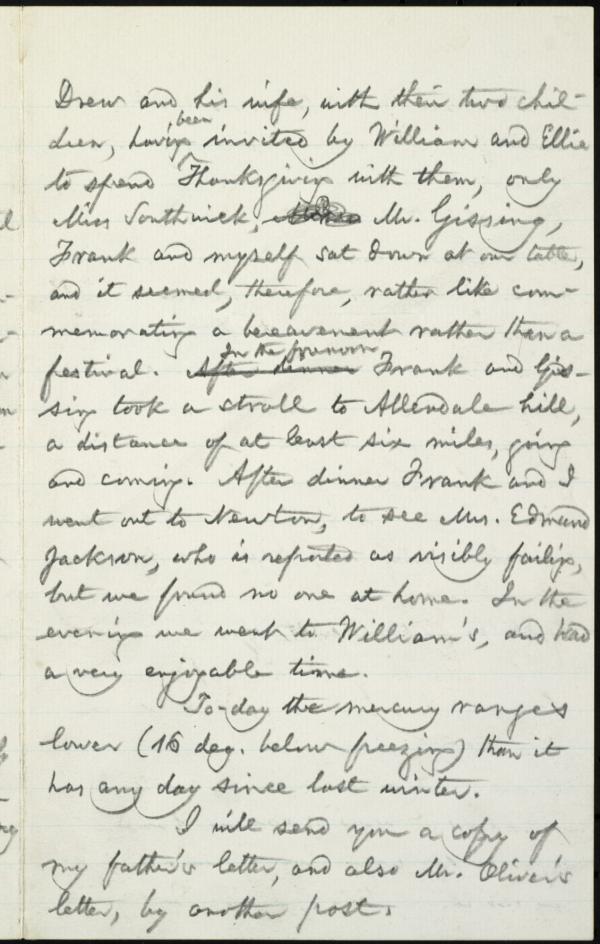 Drew and his wife, with their two chil-
dren, having been invited by William and Ellie
to spend Thanksgiving with them, only
Miss Southwick, Mr. Gissing,
Frank and myself sat down at our table,
and it seemed, therefore, rather like com-
memorating a bereavement rather than a
festival. After dinner In the forenoon Frank and Gis-
sing took a stroll to Allendale hill,
a distance of at least six miles, going
and coming. After dinner Frank and I
went out to Newton, to see Mrs. Edmund
Jackson, who is reported as visibly failing,
but we found no one at home. In the
evening we went to William's, and had
a very enjoyable time.
To-day the mercury ranges
lower (16 deg. below freezing) than it
has any day since last winter.
I will send you a copy of
my father's letter, and also Mr. Oliver's
letter, by another post.